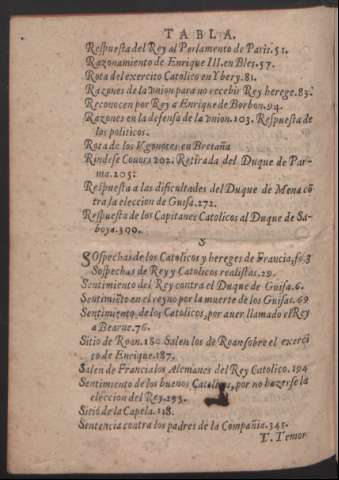 TABLA.
Respuesta del Rey al Parlamento de Paris. 51.
Razonamiento de Enrique III. en Bles. 57.
Rota del exercito Catolico en Ybery. 81.
Razones de la vnion para no recebir Rey herege. 83.
Reconocen por Rey a Enrique de Borbon. 94.
Razones en la defensa de la vnion. 103. Respuesta de
los politicos.
Rota de los Vgonotes en Bretaña
Rindese 202. Retirada del Duque de Par-
ma. 205.
Respuesta a las dificultades del Duque de Mena cõ
tra la eleccion de Guisa. 272.
Respuesta de los Capitanes Catolicos al Duque de Sa-
boya. 390.
S
SOspechas de los Catolicos y hereges de Francia, fo. 3
Sospechas de Rey y Catolicos realistas. 29.
Sentimiento del Rey contra el Duque de Guisa. 6.
Sentimiẽto en el reyno por la muerte de los Guisas. 69
Sentimiento de los Catolicos, por auer llamado el Rey
a Bearne. 76.
Sitio de Roan. 180. Salen los de Roan sobre el exerci
to de Enrique. 187.
Salen de Francia los Alemanes del Rey Catolico. 194
Sentimiento de los buenos Catolicos, por no hazerse la
eleccion del Rey. 293.
Sitio de la Capela. 318.
Sentencia contra los padres de la Compañia. 345.
T. Temor